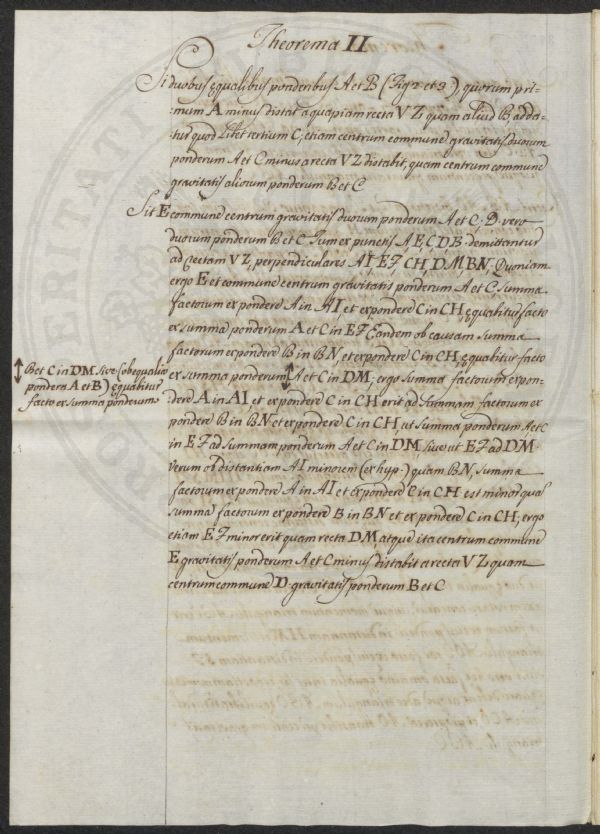 Theorema II
Si duobus ęqualibus ponderibus A et B (Fig 2 et 3.) quorum pri-
mum A minus distat a quapiam recta VZ quam aliud B adda-
tur quod libet tertium C; etiam centrum commune gravitatis duorum
ponderum A et C minus a recta VZ distabit, quam centrum commune
gravitatis aliorum ponderum B et C
Sit E commune centrum gravitatis duorum ponderum A et C. D. vero
duorum ponderum B et C Tum ex punctis A, E, C, D, B demittantur
ad rectam VZ, perpendiculares AI, EF, CH, DM, BN. Quoniam
ergo E et commune centrum gravitatis ponderum A et C. Summa
factorum ex pondere A in AI, et ex pondere C in CH ęquabitur facto
ex summa ponderum A et C in EF Eandem ob causam summa
factorum ex pondere B in BN, et ex pondere C in CH, ęquabitur facto
↕ B et C in DM. sive (ob equalia
pondera A et B) ęquabitur
facto ex summa ponderum
ex summa ponderum ↕ A et C in DM; ergo summa factorum ex pon-
dere A in AI, et ex pondere C in CH erit ad summam factorum ex
pondere B in BN et ex pondere C in CH, ut summa ponderum A et C
in EF ad summam ponderum A et C in DM sive ut EF ad DM.
verum ob distantiam AI minorem (ex hyp.) quam BN, summa
factorum ex pondere A in AI et ex pondere C in CH est minor qua
summa factorum ex pondere B in BN et ex pondere C in CH; ergo
etiam EF minor erit quam recta DM atque ita centrum commune
E gravitatis ponderum A et C minus distabit a recta VZ quam
centrum commune D gravitatis ponderum B et C